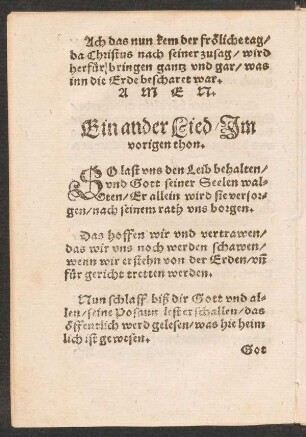 Ach das nun kem der fröliche tag/
da Christus nach seiner zusag/ wird
herfür bringen gantz vnd gar/ was
inn die Erde bescharet war.
A M E N.
Ein ander Lied Im
vorigen thon.
SO last vns den Leib behalten/
vnd Gott seiner Seelen wal-
ten/ Er allein wird sie versor-
gen/ nach seinem rath vns borgen.
Das hoffen wir vnd vertrawen/
das wir vns noch werden schawen/
wenn wir erstehn von der Erden/ vñ
für gericht tretten werden.
Nun schlaff biß dir Gott vnd al-
len/ seine Posaun lest erschallen/ das
öffentlich werd gelesen/ was hie heim
lich ist gewesen.
Got